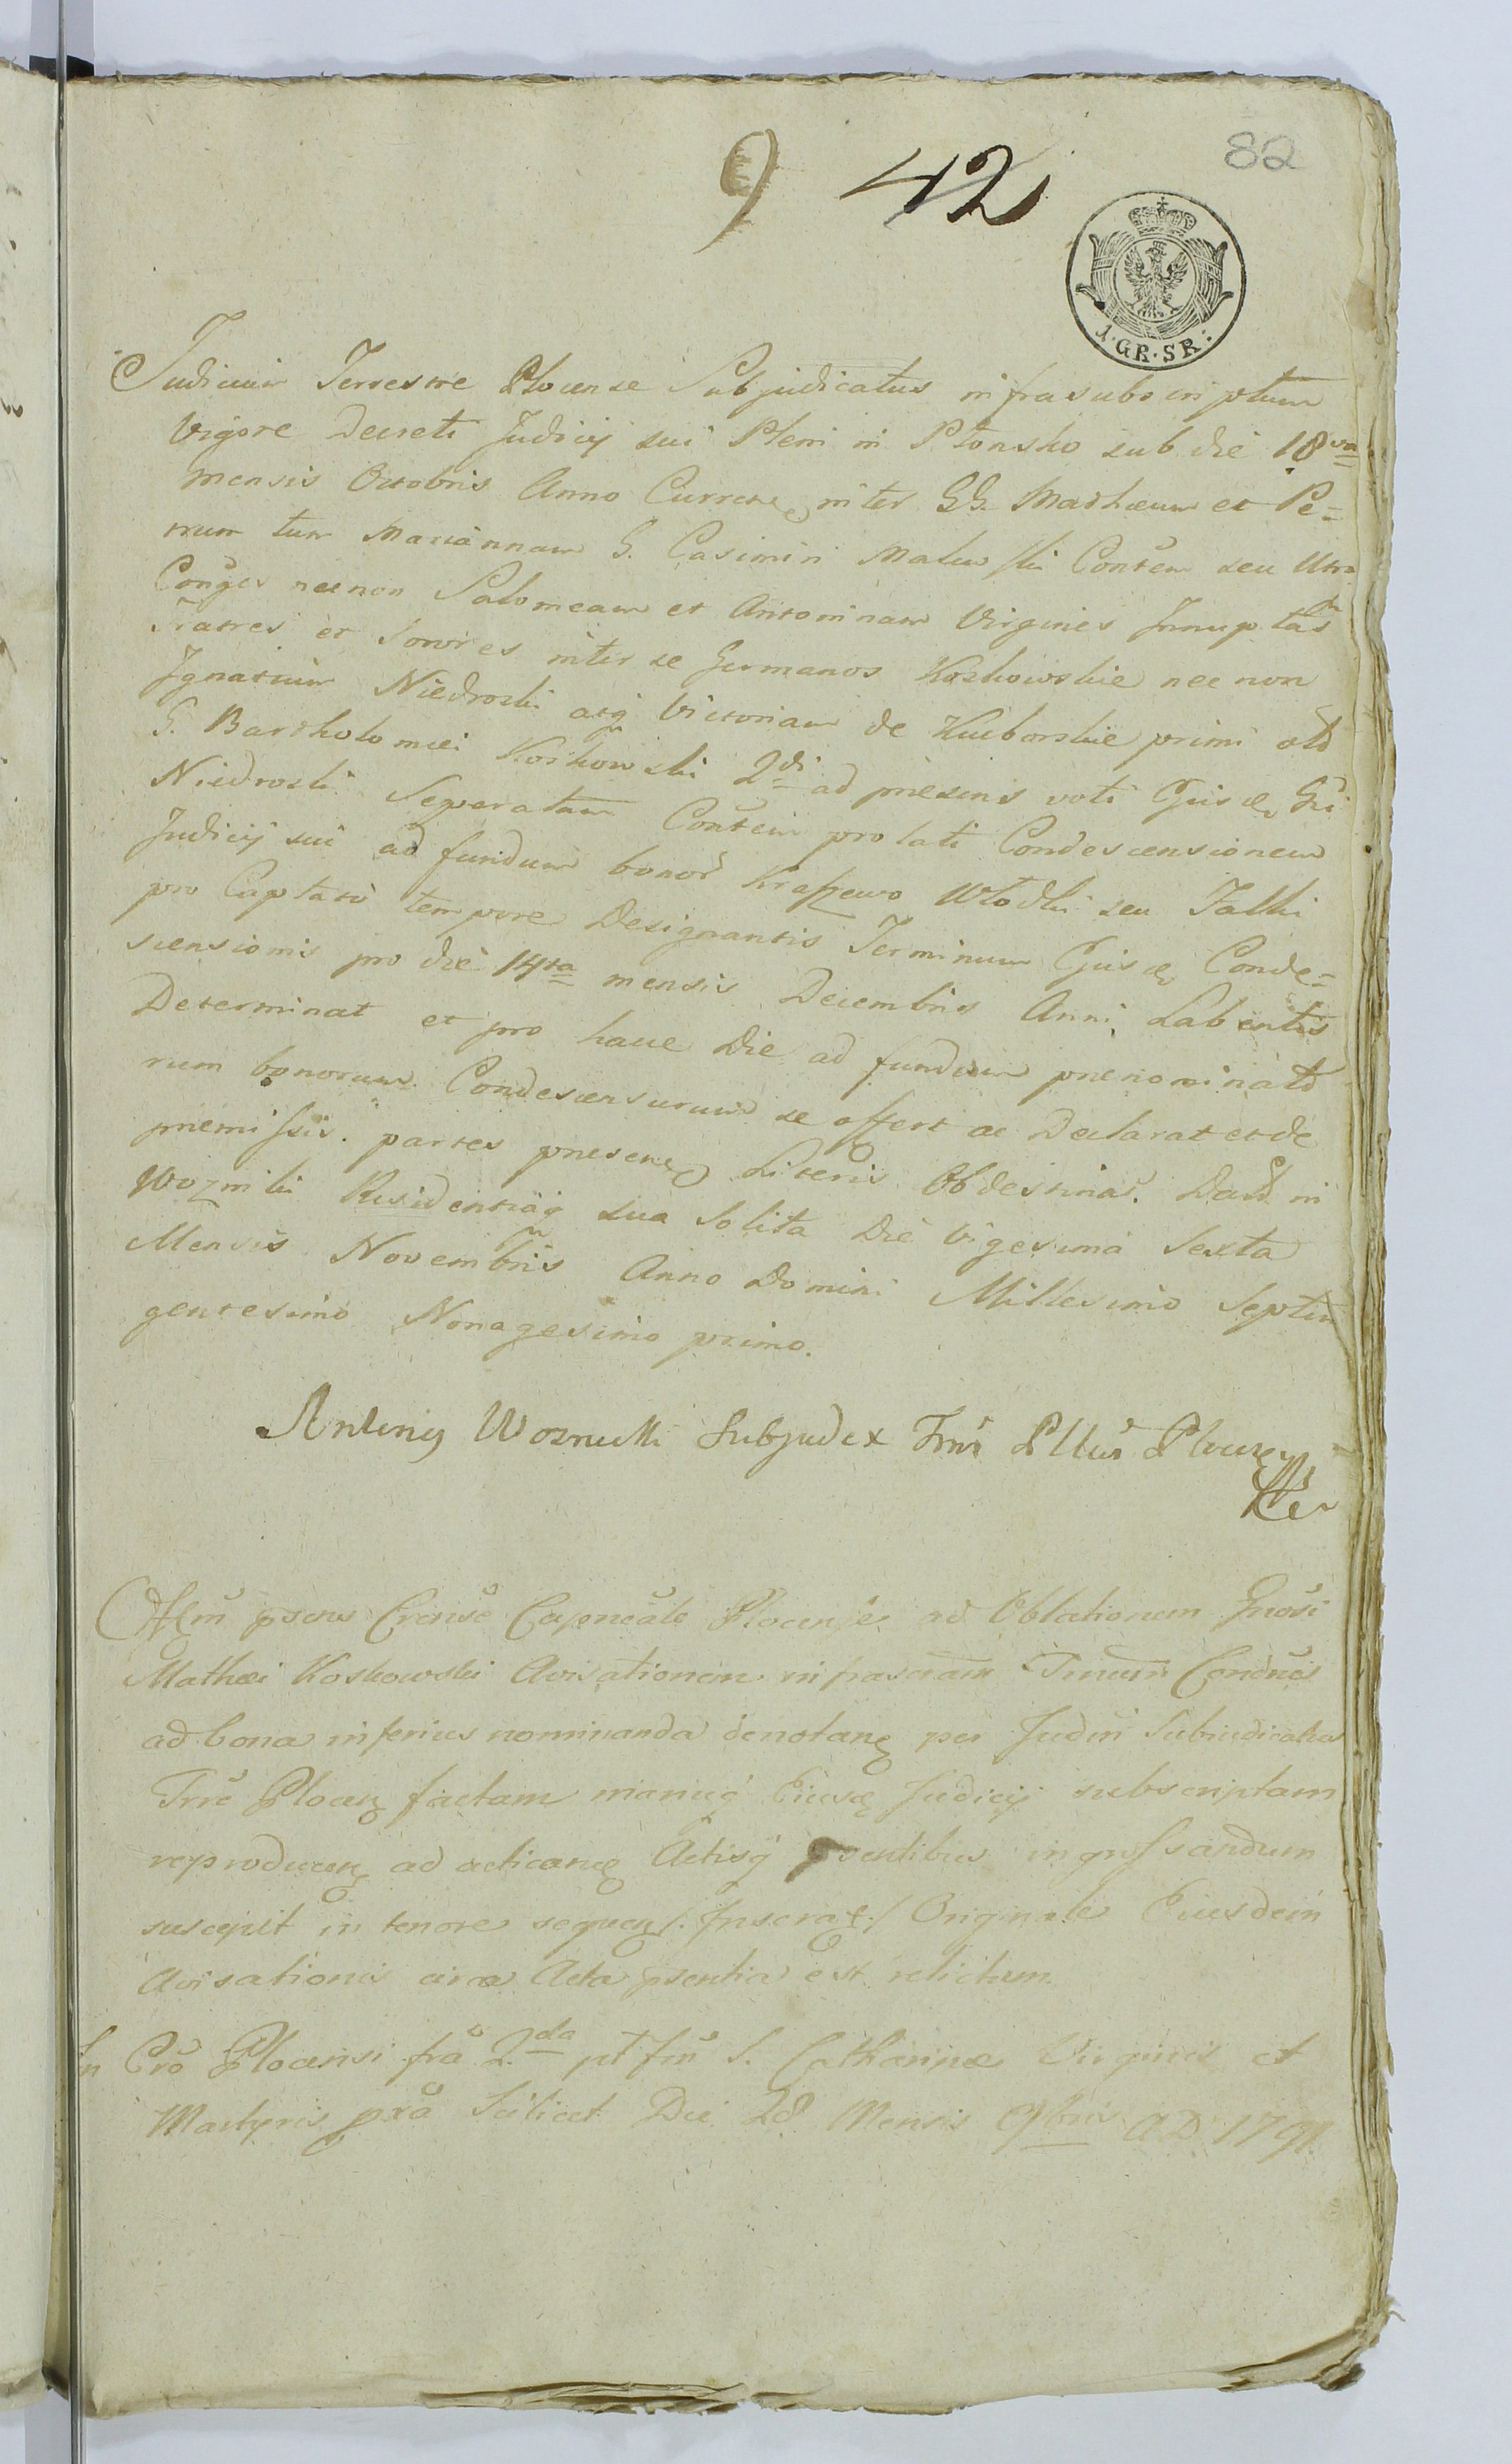 82
9 42
1. GR. SR:
Judicium Terrestre Plocense Subjudicatus infrascriptum
Vigore Decreti Judicij sui Pleni in Płonsko sub die 18va
mensis Octobris Anno Curren inter GG. Mathæum et Pe=
trum tum Mariannam G. Casimiri Malewski Contem seu Utru
Conges necnon Salomeam et Antoninam Virgines Innuptas
Fratres et Sorores inter se Germanos Koskowskie nec non
Ignatium Niedroski atq Victoriam de Kuiborskie primi olð
G. Bartholomæi Koskowski 2di ad præsens voti Ejusð Gñi
Niedroski Separatam Contem prolati Condescensionem
Judicij sui ad fundum bonor Kraszewo Włodki seu Falki
pro Captato tempore Designantis Terminum Ejusð Conde=
scensionis pro die 14ta mensis Decembris Anni Labentis
Determinat et pro hacce Die ad fundum prænominatð
rum bonorum Condescensurum se offert ac Declarat et de
præmissis partes præsen Literis Obdestinat. Datð in
Woznikи Residentiaq sua Solita Die Vigesima Sexta
Mensis Novembris Anno Domini Millesimo Septin
gentesimo Nonagesimo primo.
Antoniy Woznicki Subjudex Trris Pttus Plocen
Officm psens Crense Capneale Plocense ad Oblationem Gnosi
Mathæi Koskowski Avisationem infrascram Tmum Concnis
ad bona inferius nominanda denotan per Judm Subiudicatus
Trre Plocen factam manuq Eiusd Judicij subscriptam
reproducen ad acticand Actisq psentibus ingrossandum
suscepit in tenore sequen /. Inserat ./ Originale Eiusdem
Avisationis circa Acta psentia est relictum.
In Cro Plocensi fra 2da pt fm S. Catharinæ Virginis et
Martyris pxa Scilicet Die 28 Mensis 9bris AD 1791.